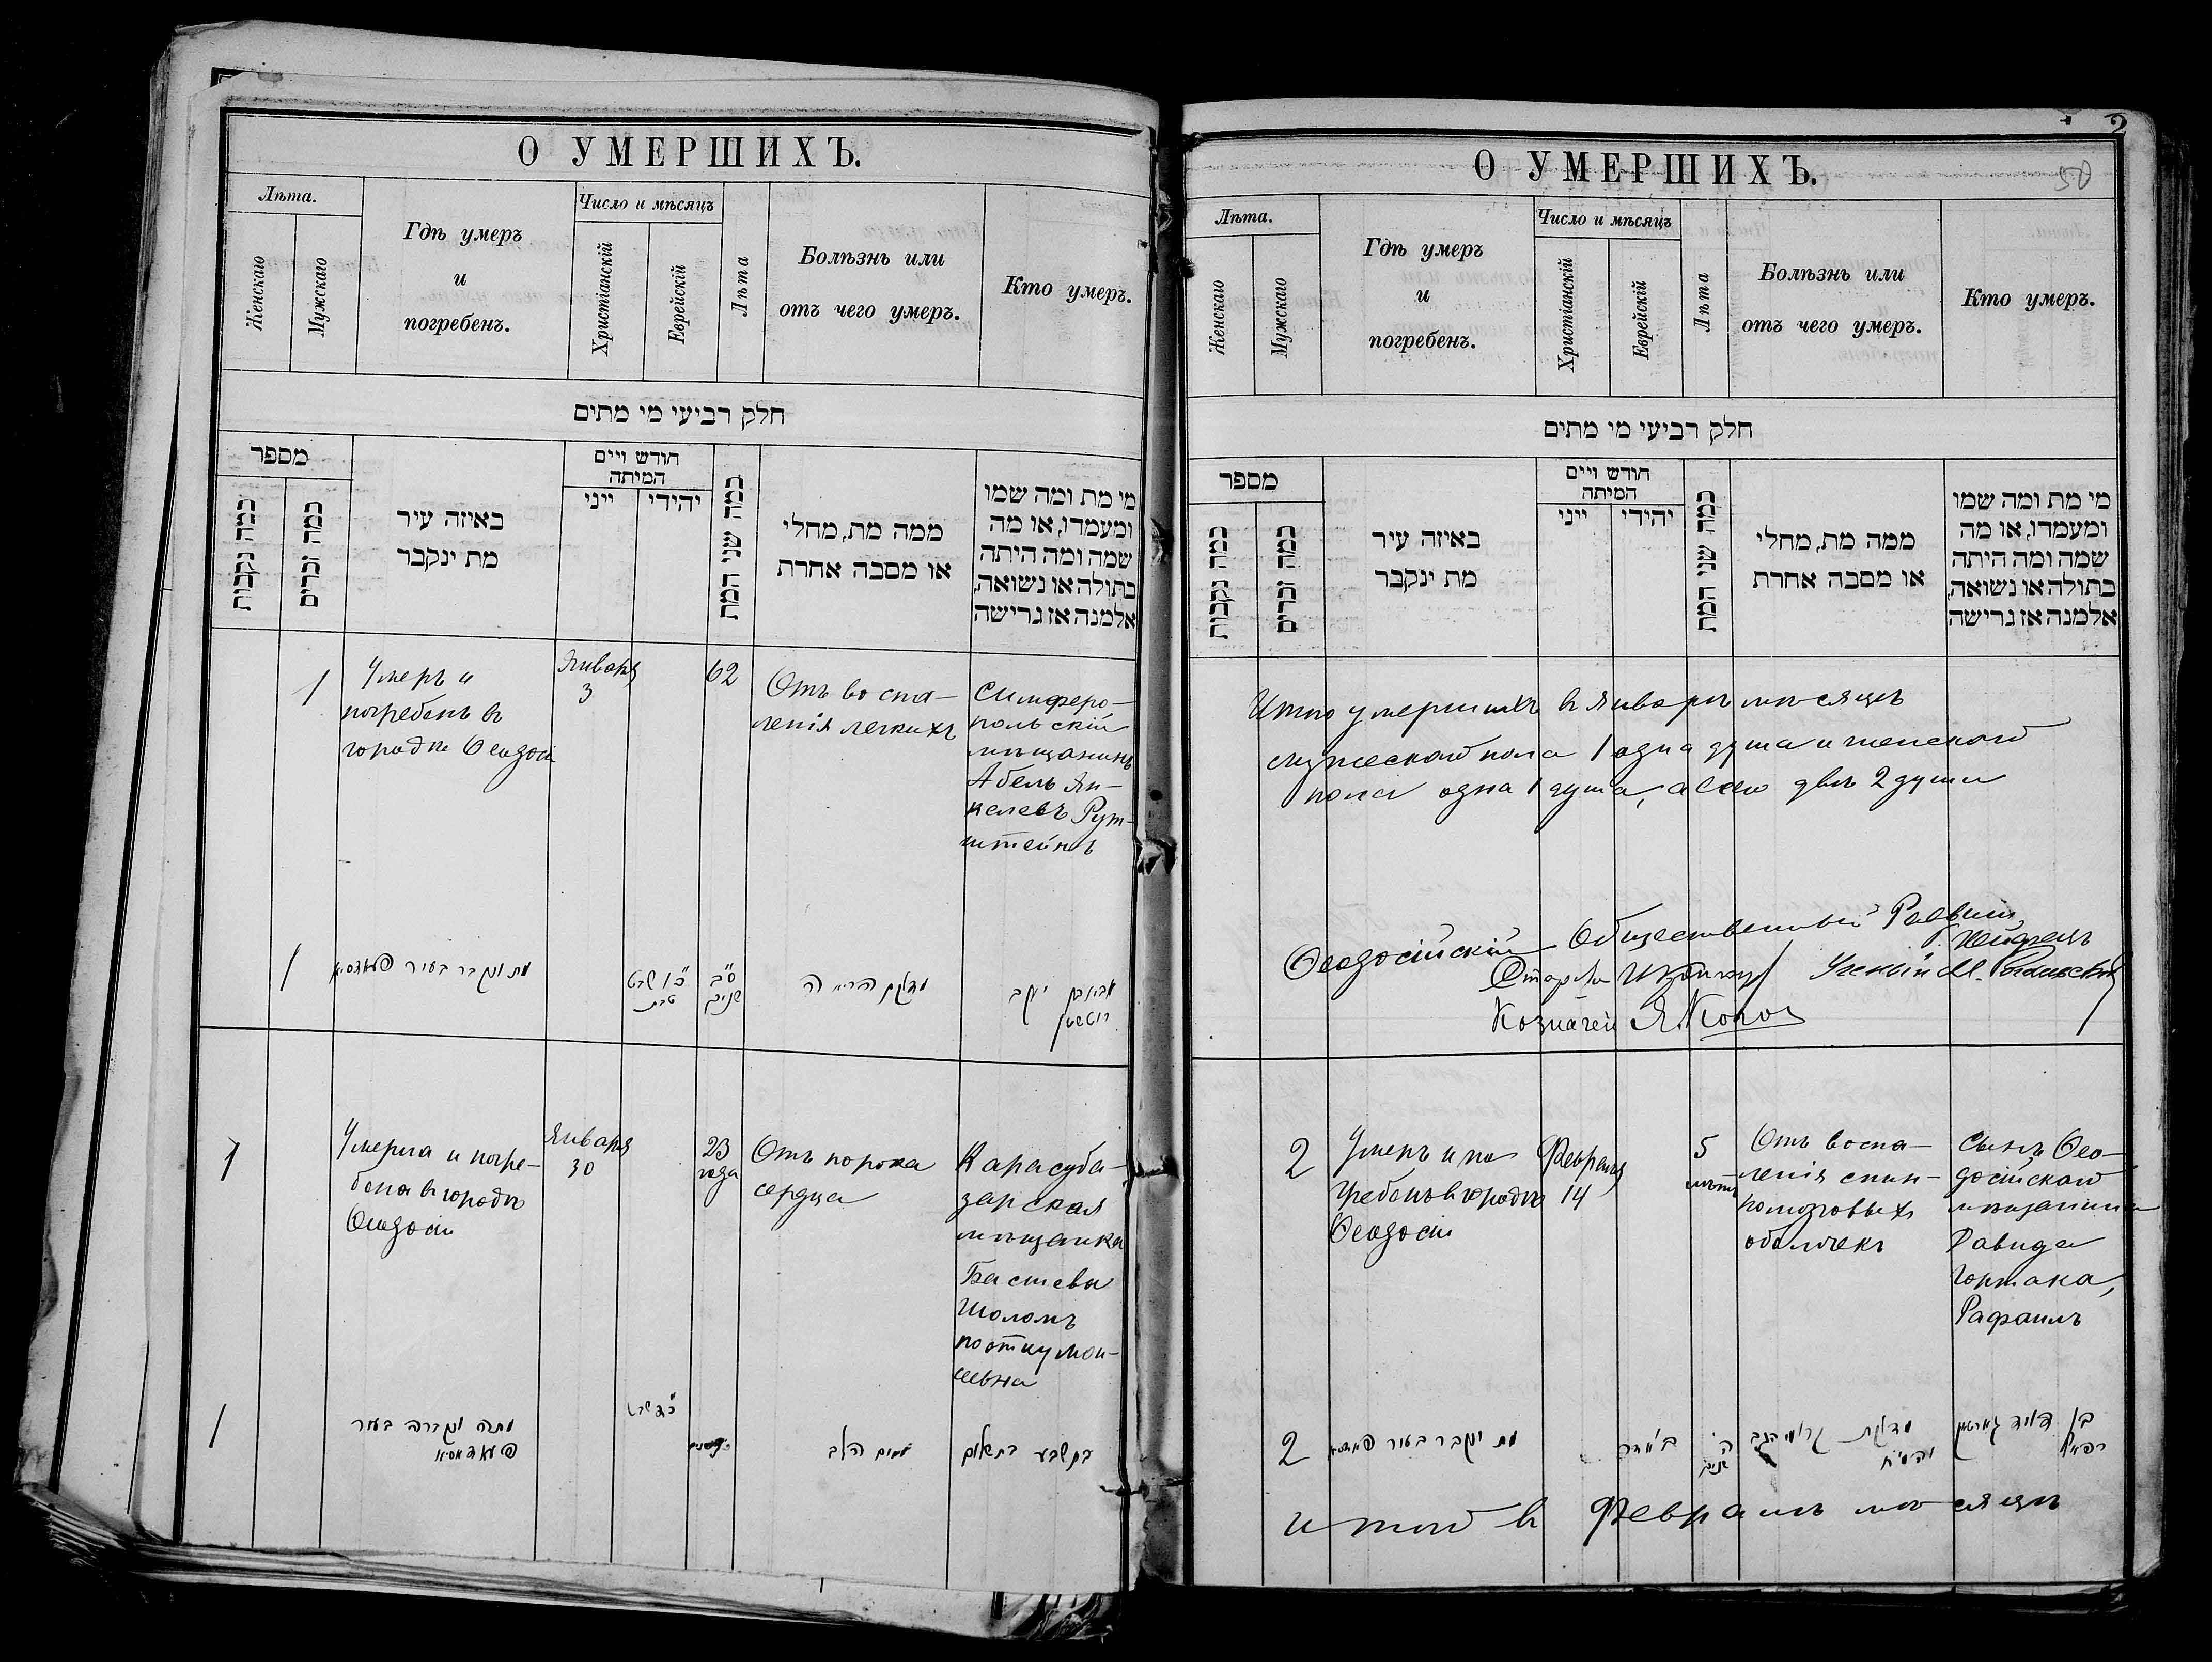 О УМЕРШИХЪ.
Лѣта.
Женскаго
Мужскаго
Гдѣ умеръ
и
погребенъ.
Число и мѣсяцъ
Христіанскій
Еврейскій
Лѣта
Болѣзнь или
отъ чего умеръ.
Кто умеръ.
חלק רביעי מי מתים
מספר
כמה נקבות
כמה זכרים
באיזה עיר
מת ינקבר
חודש ויים
המיתה
ייני
יהידי
כמה שני המת
ממה מת, מחלי
או מסבה אחרת
מי מת ומה שמו
ומעמדו, או מה
שמה ומה היתה
בתולה או נשואה,
אלמנה אז גרישה
1
Умеръ и
погребенъ въ
городѣ Ѳеодосіи
Января
3
62
Отъ воспа-
ленія легкихъ
Симферо-
польскій
мѣщанинъ
Абель Ян-
келевъ Рут-
штейнъ
1
מת ונקבר בעיר
טבת
ס״ב
שנים
יעקב
1
Умерла и погре-
бена въ городѣ
Ѳеодосіи
Января
30
23
года
Отъ порока
сердца
Карасуба-
зарская
мѣщанка
Бастева
Шоломъ
1
מתה ונקברה בעיר
הלב
О УМЕРШИХЪ.
2
50
Лѣта.
Женскаго
Мужскаго
Гдѣ умеръ
и
погребенъ.
Число и мѣсяцъ
Христіанскій
Еврейскій
Лѣта
Болѣзнь или
отъ чего умеръ.
Кто умеръ.
חלק רביעי מי מתים
מספר
כמה נקבות
כמה זכרים
באיזה עיר
מת ינקבר
חודש ויים
המיתה
ייני
יהידי
כמה שני המת
ממה מת, מחלי
או מסבה אחרת
מי מת ומה שמו
ומעמדו, או מה
שמה ומה היתה
בתולה או נשואה,
אלמנה אז גרישה
Итого умершихъ въ январѣ мѣсяцѣ
мужескаго пола 1 одна душа и женскаго
пола одна 1 душа, а всего двѣ 2 души
Ѳеодосійскій Общественный Раввинъ
Староста
Ученый М.
Козначей Я.
2
Умеръ и по
гребенъ въ городѣ
Ѳеодосіи
Февраля
14
5
лѣтъ
Отъ воспа-
ленія спин-
номозговыхъ
оболочекъ
Сынъ Ѳео-
досійскаго
мѣщанина
Давида
Гортака,
Рафаилъ
2
מת ונקבר בעיר
ה׳
שנים
בן דוד
רפאל
итого въ Февралѣ мѣсяцѣ